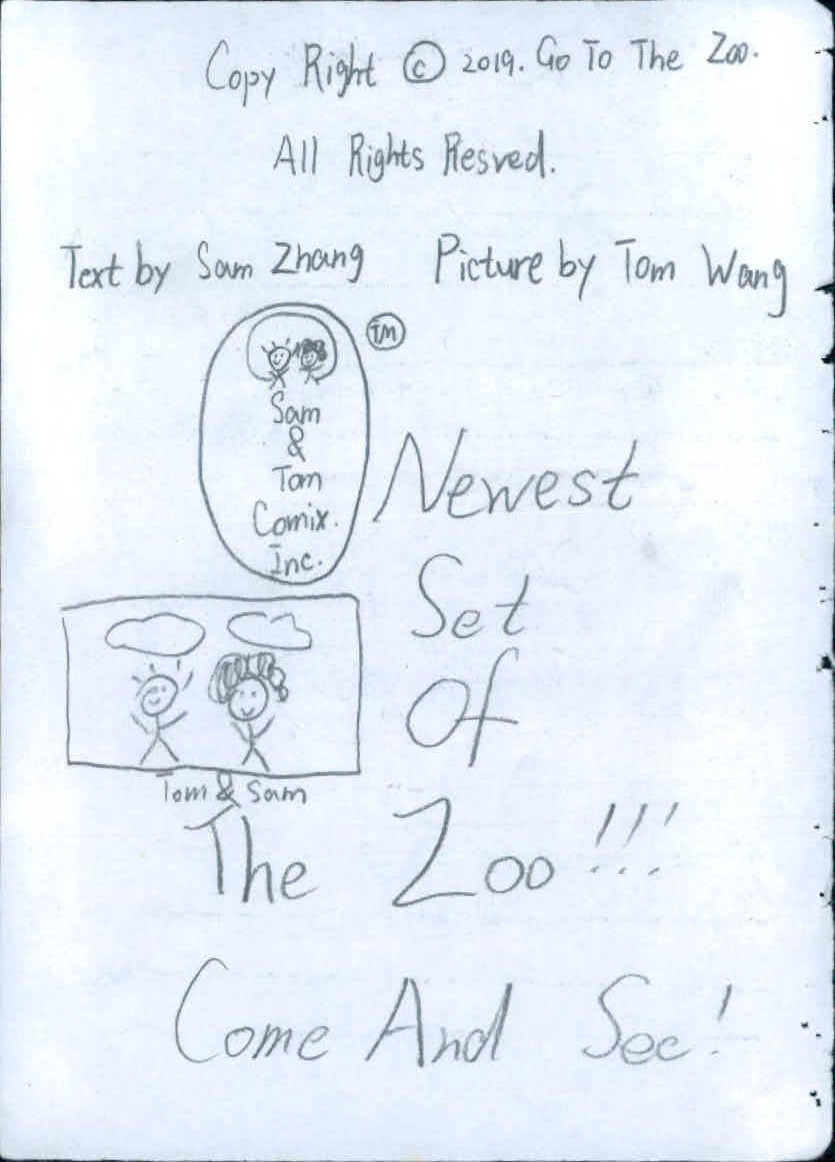 Copy Right © 2019. Go To The Zoo.
All Rights Resved.
Text by Sam Zhang Picture by Tom Wang
TM
Sam
&
Tom
Comix.
Inc.
Newest
Set
Of
Tom & Sam
The Zoo!!!
Come And See!